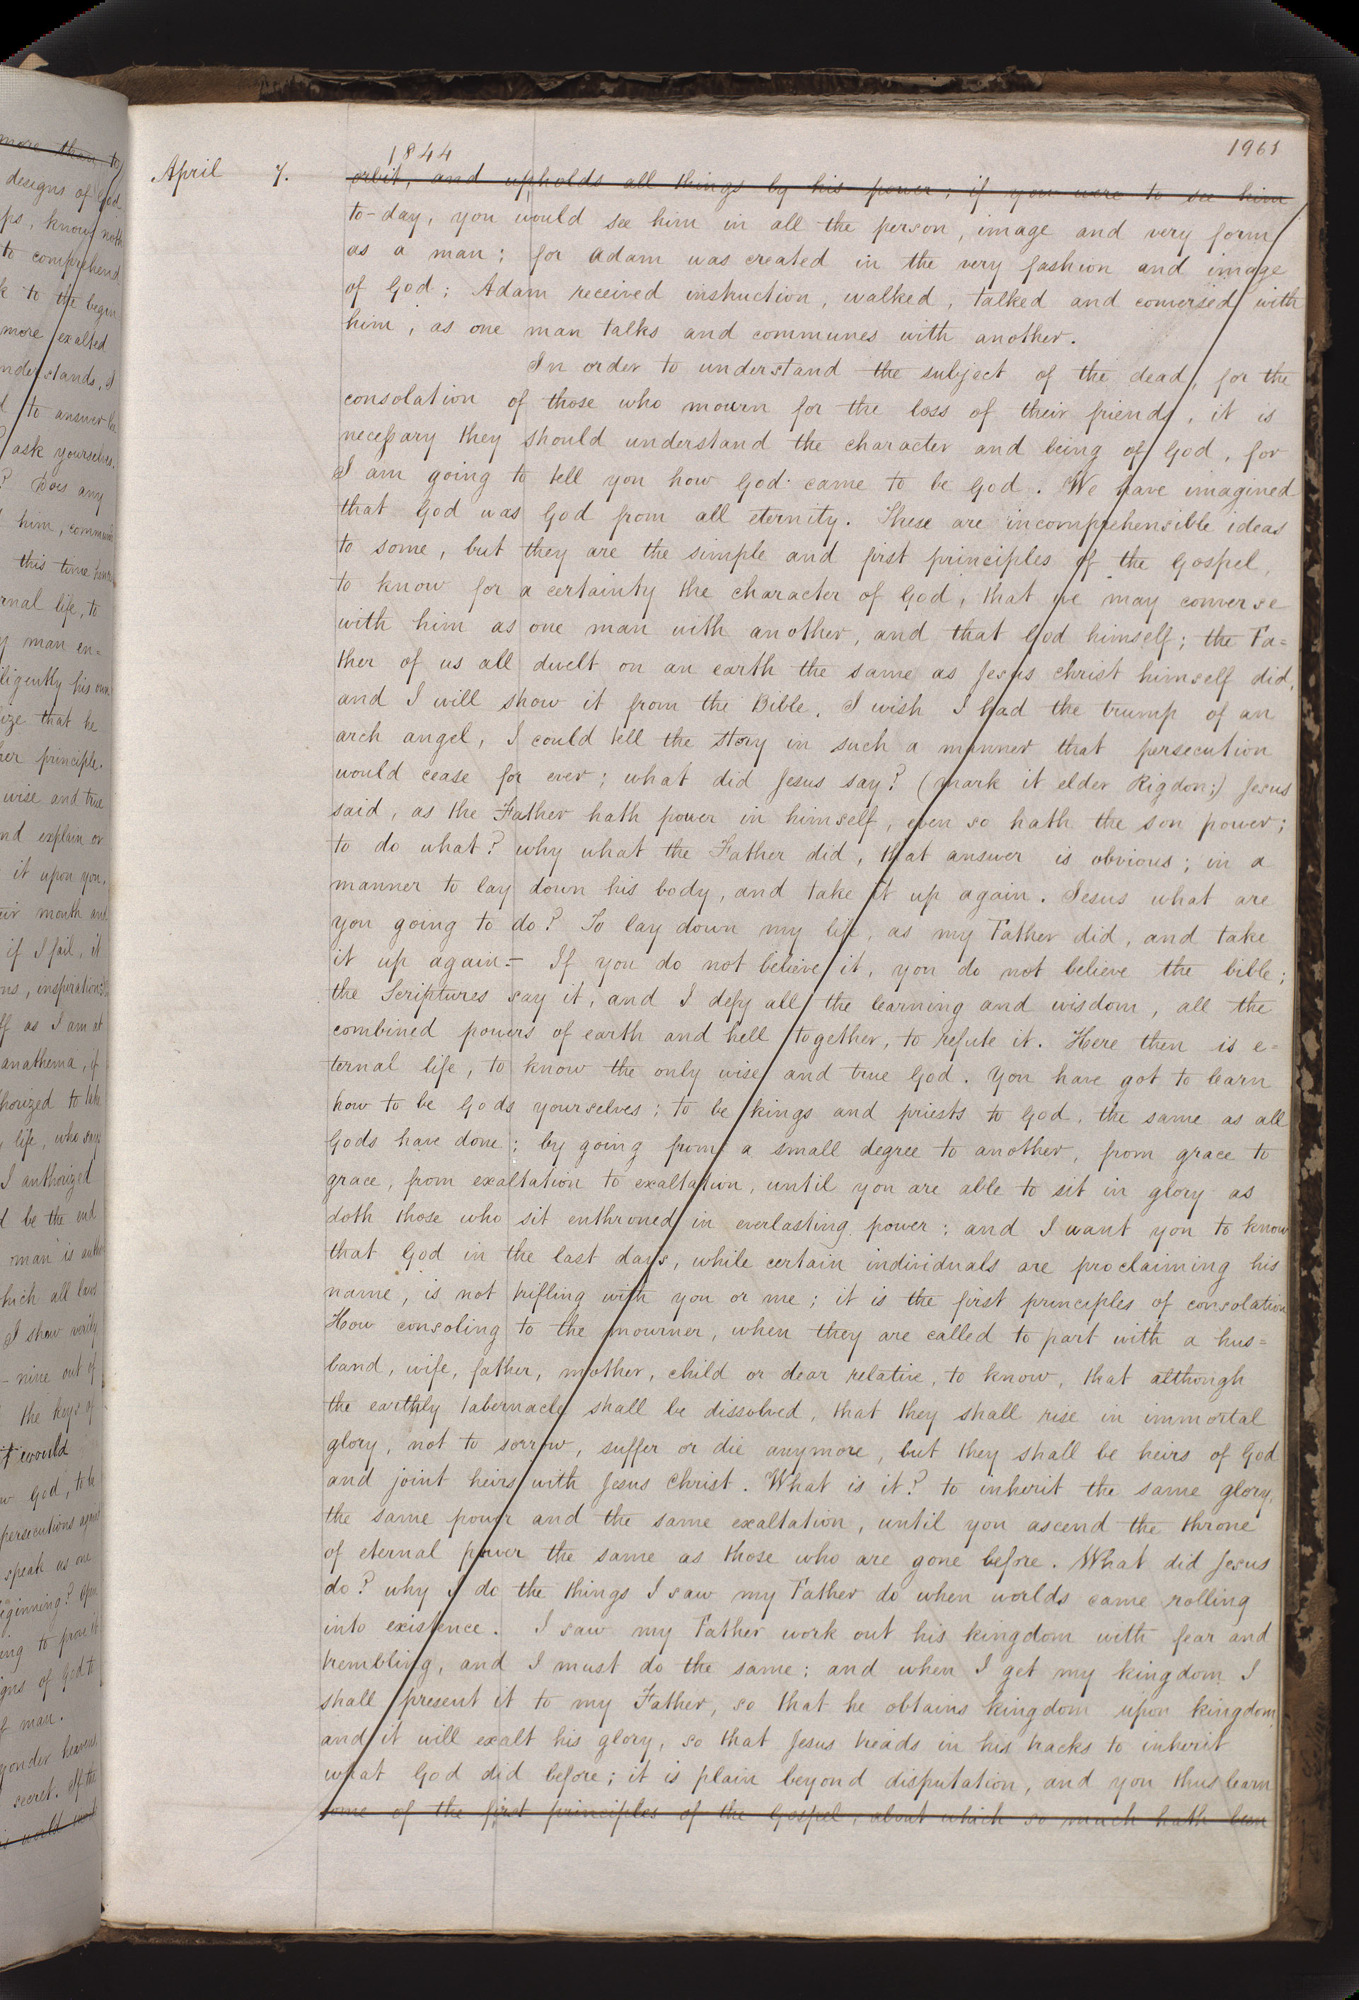 more than to
designs of God
ps, knows noth
to comprehend
k to the begin
more exalted
nderstands, I
d to answer
ask yourselves.
? Does any
him, commun
this time hence
rnal life, to
y man en=
ligently his own
ize that he
her principle.
wise and true
nd explain or
it upon you.
eir mouth and
if I fail, it
ns, inspiration
ff as I am at
anathema, if
horized to take
life, who says
I authorized
d be the end
man is auth
hich all laws
I show verily
- nine out of
the keys of
I would
w God, to be
persecutions against
speak as one
eginning? Open
ing to prove it
gns of God to
f man.
yonder heavens,
secret. If the
is world
1844
1961
April 7. orbit, and upholds all things by his power; if you were to see him
to-day, you would see him in all the person, image and very form
as a man; for Adam was created in the very fashion and image
of God; Adam received instruction, walked, talked and conversed with
him, as one man talks and communes with another.
In order to understand the subject of the dead, for the
consolation of those who mourn for the loss of their friends, it is
necessary they should understand the character and being of God, for
I am going to tell you how God came to be God. We have imagined
that God was God from all eternity. These are incomprehensible ideas
to some, but they are the simple and first principles of the Gospel,
to know for a certainty the character of God, that we may converse
with him as one man with another, and that God himself; the Fa=
ther of us all dwelt on an earth the same as Jesus Christ himself did,
and I will show it from the Bible. I wish I had the trump of an
arch angel, I could tell the story in such a manner that persecution
would cease for ever; what did Jesus say? (mark it elder Rigdon;) Jesus
said, as the Father hath power in himself, even so hath the son power;
to do what? why what the Father did, that answer is obvious; in a
manner to lay down his body, and take it up again. Jesus what are
you going to do? To lay down my life, as my Father did, and take
it up again.- If you do not believe it, you do not believe the bible;
the Scriptures say it, and I defy all the learning and wisdom, all the
combined powers of earth and hell together, to refute it. Here then is e=
ternal life, to know the only wise and true God. You have got to learn
how to be Gods yourselves; to be kings and priests to God, the same as all
Gods have done; by going from a small degree to another, from grace to
grace, from exaltation to exaltation, until you are able to sit in glory as
doth those who sit enthroned in everlasting power; and I want you to know
that God in the last days, while certain individuals are proclaiming his
name, is not trifling with you or me; it is the first principles of consolation
How consoling to the mourner, when they are called to part with a hus=
band, wife, father, mother, child or dear relative, to know, that although
the earthly tabernacle shall be dissolved, that they shall rise in immortal
glory, not to sorrow, suffer or die anymore, but they shall be heirs of God
and joint heirs with Jesus Christ. What is it? to inherit the same glory,
the same power and the same exaltation, until you ascend the throne
of eternal power the same as those who are gone before. What did Jesus
do? why I do the things I saw my Father do when worlds came rolling
into existence. I saw my Father work out his kingdom with fear and
trembling, and I must do the same; and when I get my kingdom I
shall present it to my Father, so that he obtains kingdom upon kingdom
and it will exalt his glory, so that Jesus treads in his tracks to inherit
what God did before; it is plain beyond disputation, and you thus learn
some of the first principles of the Gospel, about which so much hath been